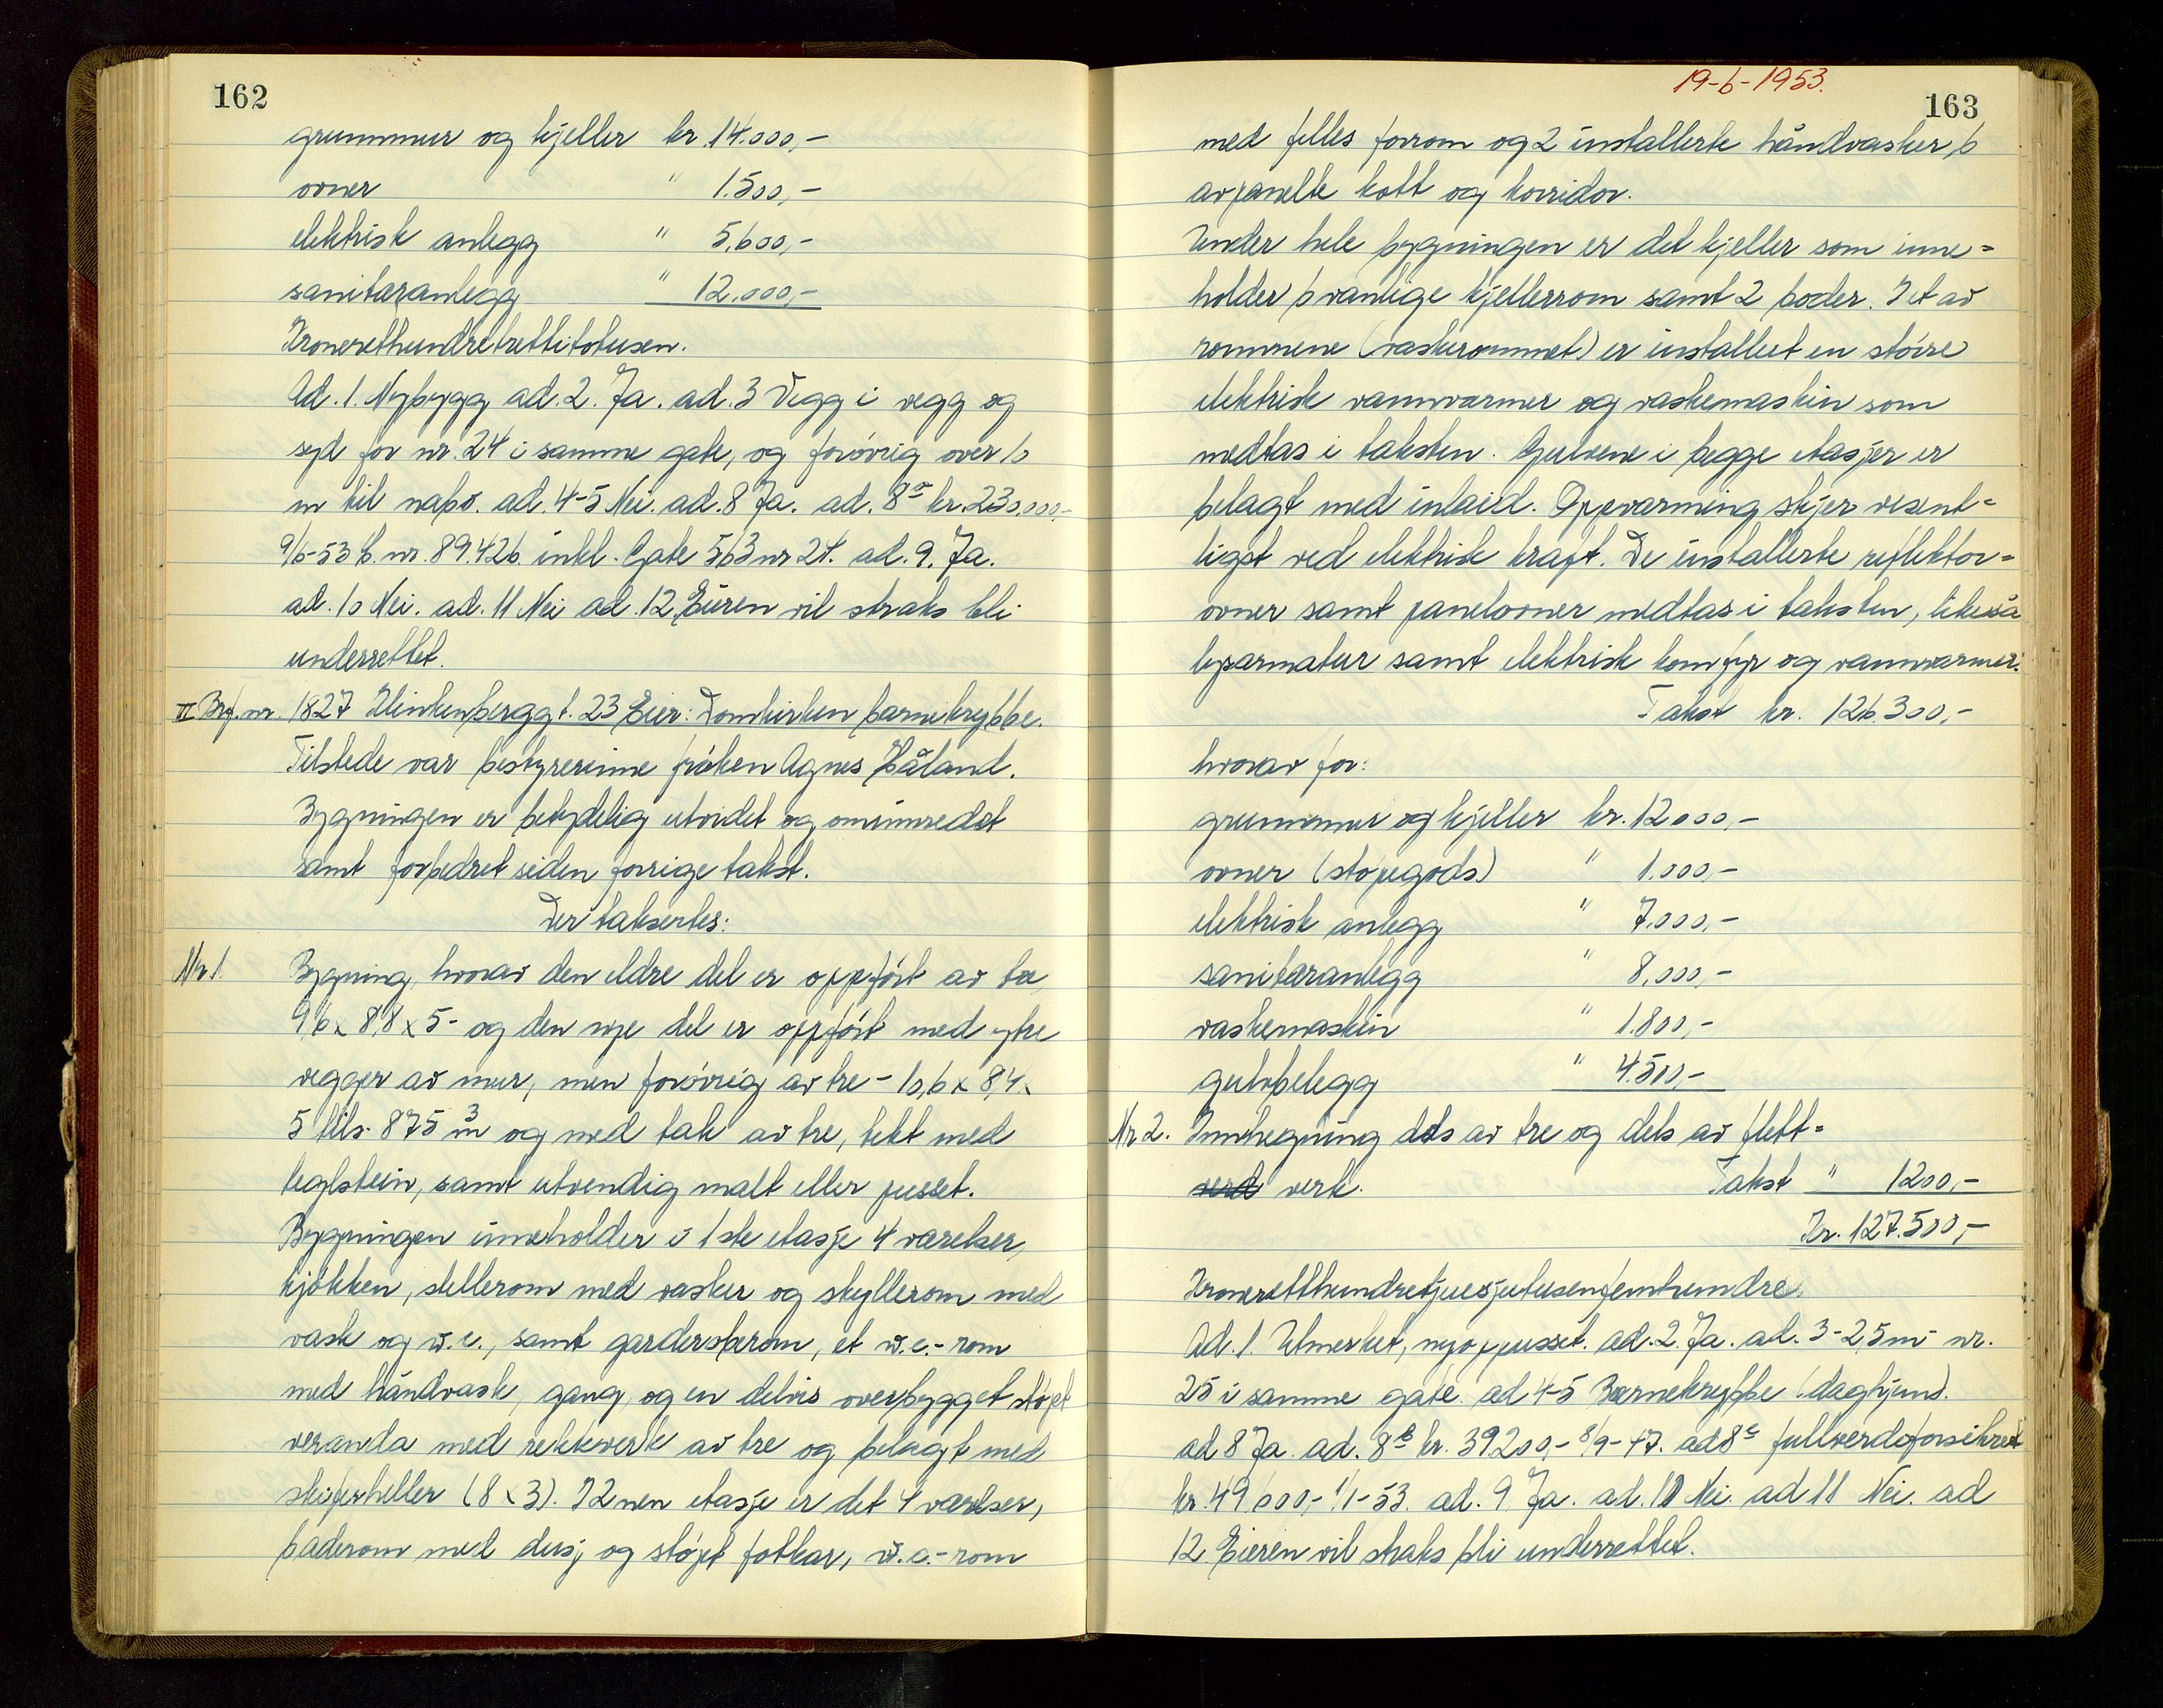 162
grunnmur og kjeller kr. 14.000,-
ovner " 1.500,-
elektrisk anlegg " 5.600,-
sanitæranlegg " 12.000,-
Kronerethundretrettitotusen.
Ad. 1. Nybygg ad. 2. Ja. ad. 3 Vegg i vegg og
syd for nr. 24 i samme gate, og forövrig over 10
m til nabo. ad. 4-5 Nei. ad. 8 Ja. ad. 8a kr. 230.000,-
9/6-53 b. nr. 89.426. inkl. Gate 563 nr 24. ad. 9. Ja.
ad. 10 Nei. ad. 11 Nei ad. 12 Eieren vil straks bli
underrettet.
II Brf. nr. 1827 Klinkenberggt. 23 Eier: Domkirken barnekrybbe.
Tilstede var bestyrerinne fröken Agnes Håland.
Bygningen er betydelig utvidet og ominnredet
samt forbedret siden forrige takst.
Der taksertes:
Nr. 1. Bygning, hvorav den eldre del er oppfört av tre
9,6 x 8,8 x 5- og den nye del er oppfört med ytre
vegger av mur, men forövrig av tre - 10,6 x 8,4 x
5 tils. 875 m3 og med tak av tre, tekt med
teglstein, samt utvendig malt eller pusset.
Bygningen inneholder i 1ste etasje 4 værelser,
kjökken, stellerom med vasker og skyllerom med
vask og w.c., samt garderoberom, et w.c.-rom
med håndvask, gang, og en delvis overbygget stöpt
veranda med rekkverk av tre og belagt med
skiferheller (8 x 3). I 2nen etasje er det 4 værelser,
baderom med dusj og stöpt fotkar, w.c.-rom
19-6-1953.
163
med felles forrom og 2 installerte håndvasker, 6
avpanelte kott og korridor.
Under hele bygningen er det kjeller som inne=
holder 6 vanlige kjellerrom samt 2 boder. I et av
rommene (vaskerommet) er installert en större
elektrisk vannvarmer og vaskemaskin som
medtas i taksten. Gulvene i begge etasjer er
belagt med inlaid. Oppvarming skjer vesent=
ligst ved elektrisk kraft. De installerte reflektor=
ovner samt panelovner medtas i taksten, likeså
lysarmatur samt elektrisk komfyr og vannvarmer.
Takst kr. 126.300,-
hvorav for:
grunnmur og kjeller kr. 12000,-
ovner (stöpegods) " 1.000,-
elektrisk anlegg " 7.000,-
sanitæranlegg " 8.000,-
vaskemaskin " 1.800,-
gulvbelegg " 4.500,-
Nr 2. Innhegning dels av tre og dels av flett=
verd verk. Takst " 1200,-
Kr. 127.500,-
Kroneretthundretjuesjutusenfemhundre.
Ad. 1. Utmerket, nyoppusset. ad. 2. Ja. ad. 3 - 2,5 m - nr.
25 i samme gate. ad 4-5 Barnekrybbe (daghjem).
ad 8 Ja. ad. 8b kr. 39200,- 8/9-47. ad 8c fullverdsforsikret
kr. 49600,- 1/1-53. ad. 9 Ja. ad. 10 Nei. ad 11 Nei. ad
12. Eieren vil straks bli underrettet.